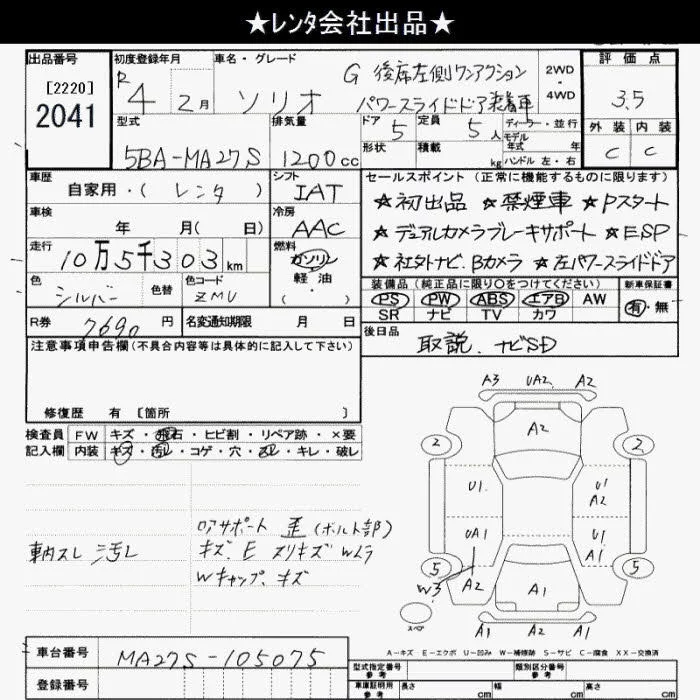 ★レンタ会社出品★
出品番号
[2220]
2041
初度登録年月
R 4年 2月
車名・グレード
ソリオ
G 後席左側ワンアクション
パワースライドドア装着車
2WD・4WD
評価点
3.5
外装 内装
C C
型式
5BA-MA27S
排気量
1200cc
ドア 5
定員 5人
ディーラー・並行
モデル年式 年
形状
積載 kg
ハンドル 左・右
車歴
自家用・(レンタ)
シフト
IAT
車検
年 月(日)
冷房
AAC
走行
10万5千303km
燃料
ガソリン
軽油
・
色
シルバー
色替
色コード
ZMU
R券 7690円
名変通知期限 月 日
セールスポイント (正常に機能するものに限ります)
★初出品 ★禁煙車 ★Pスタート
★デュアルカメラブレーキサポート ★ESP
★社外ナビ.Bカメラ ★左パワースライドドア
装備品 (純正品に限り○をつけてください)
新車保証書
PS PW ABS エアB AW
有・無
SR ナビ TV カワ
後日品
取説、ナビSD
注意事項申告欄(不具合内容等は具体的に記入して下さい)
修復歴 有 [箇所 ]
検査員記入欄
FW キズ・飛石・ヒビ割・リペア跡・×要
内装 キズ・汚レ・コゲ・穴・スレ・キレ・破レ
車内スレ 汚レ
ロアサポート 歪(ボルト部)
キズ、E スリキズ Wムラ
Wキャップ、キズ
A3 UA2 A2
A2
2 2
U1 U1
A2
UA1 U1
A1
5 5
W3 A2 A1
スペア
A1 A2 A1
A-キズ E-エクボ U-凹み W-補修跡 S-サビ C-腐食 XX-交換済
車台番号
MA27S-105075
登録番号
型式指定番号参考
類別区分番号参考
車庫証明用参考
長さ cm
幅 cm
高さ cm